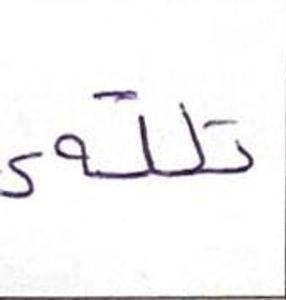 تلتقى